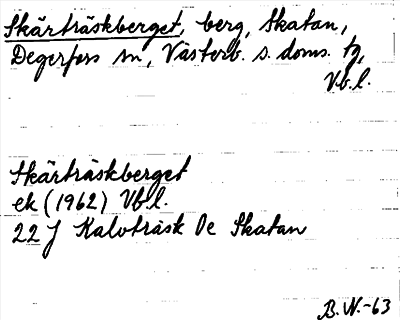 Skärträskberget, berg, Skatan,
Degerfors sn, Västerb. s. doms. tg,
Vb. l.
Skärträskberget
ek (1962) Vb l.
22 J Kalvträsk 0e Skatan
B. N. -63